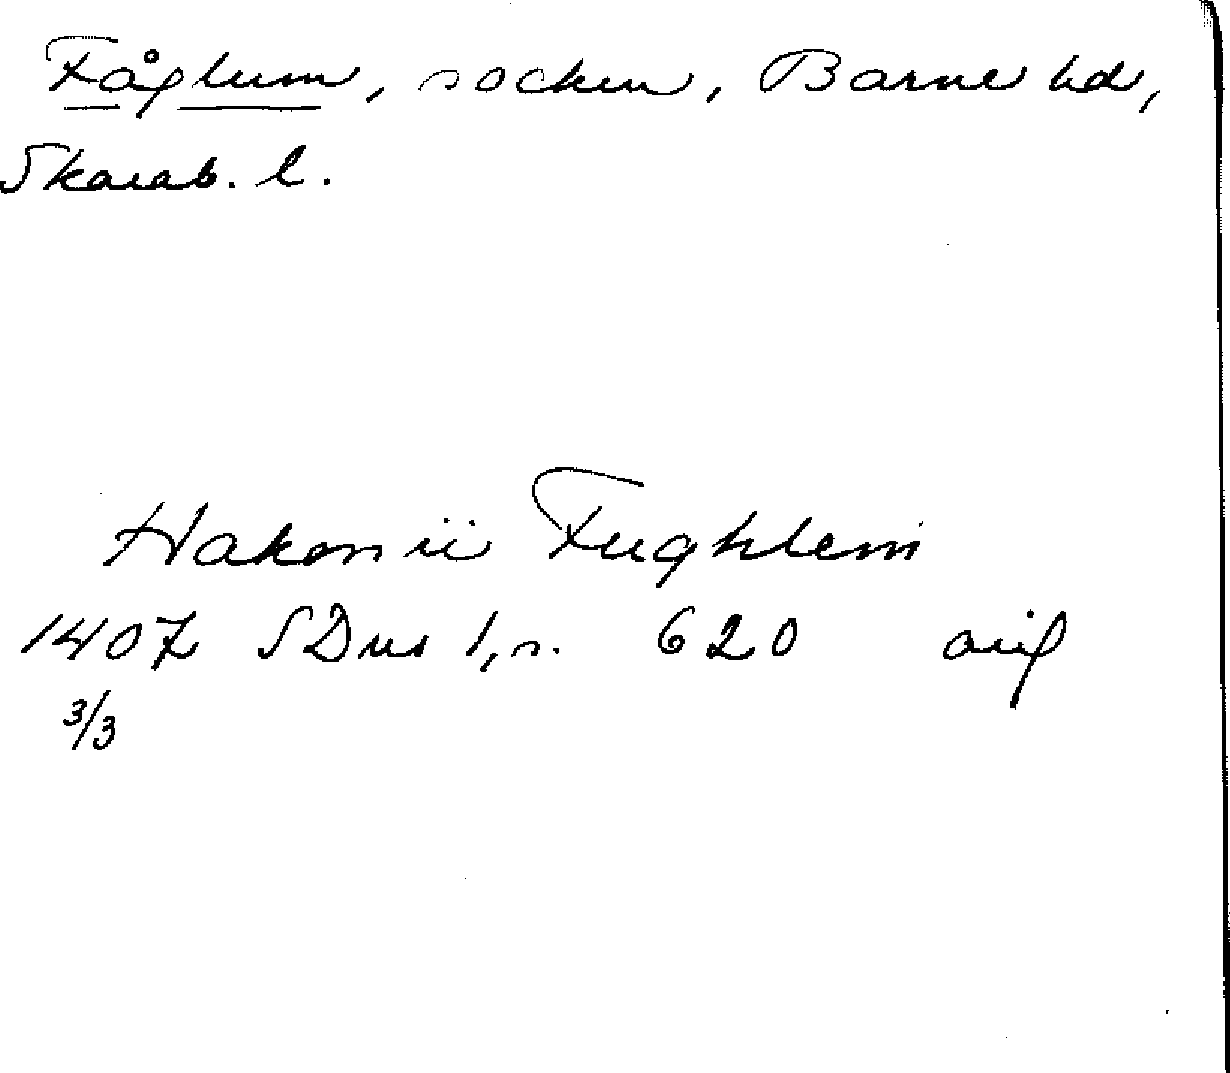 Fåglum, socken, Barne hd,
Skarab. l.
Hakonii Fughlem
1407 SDns 1, s. 620 avif
3/3